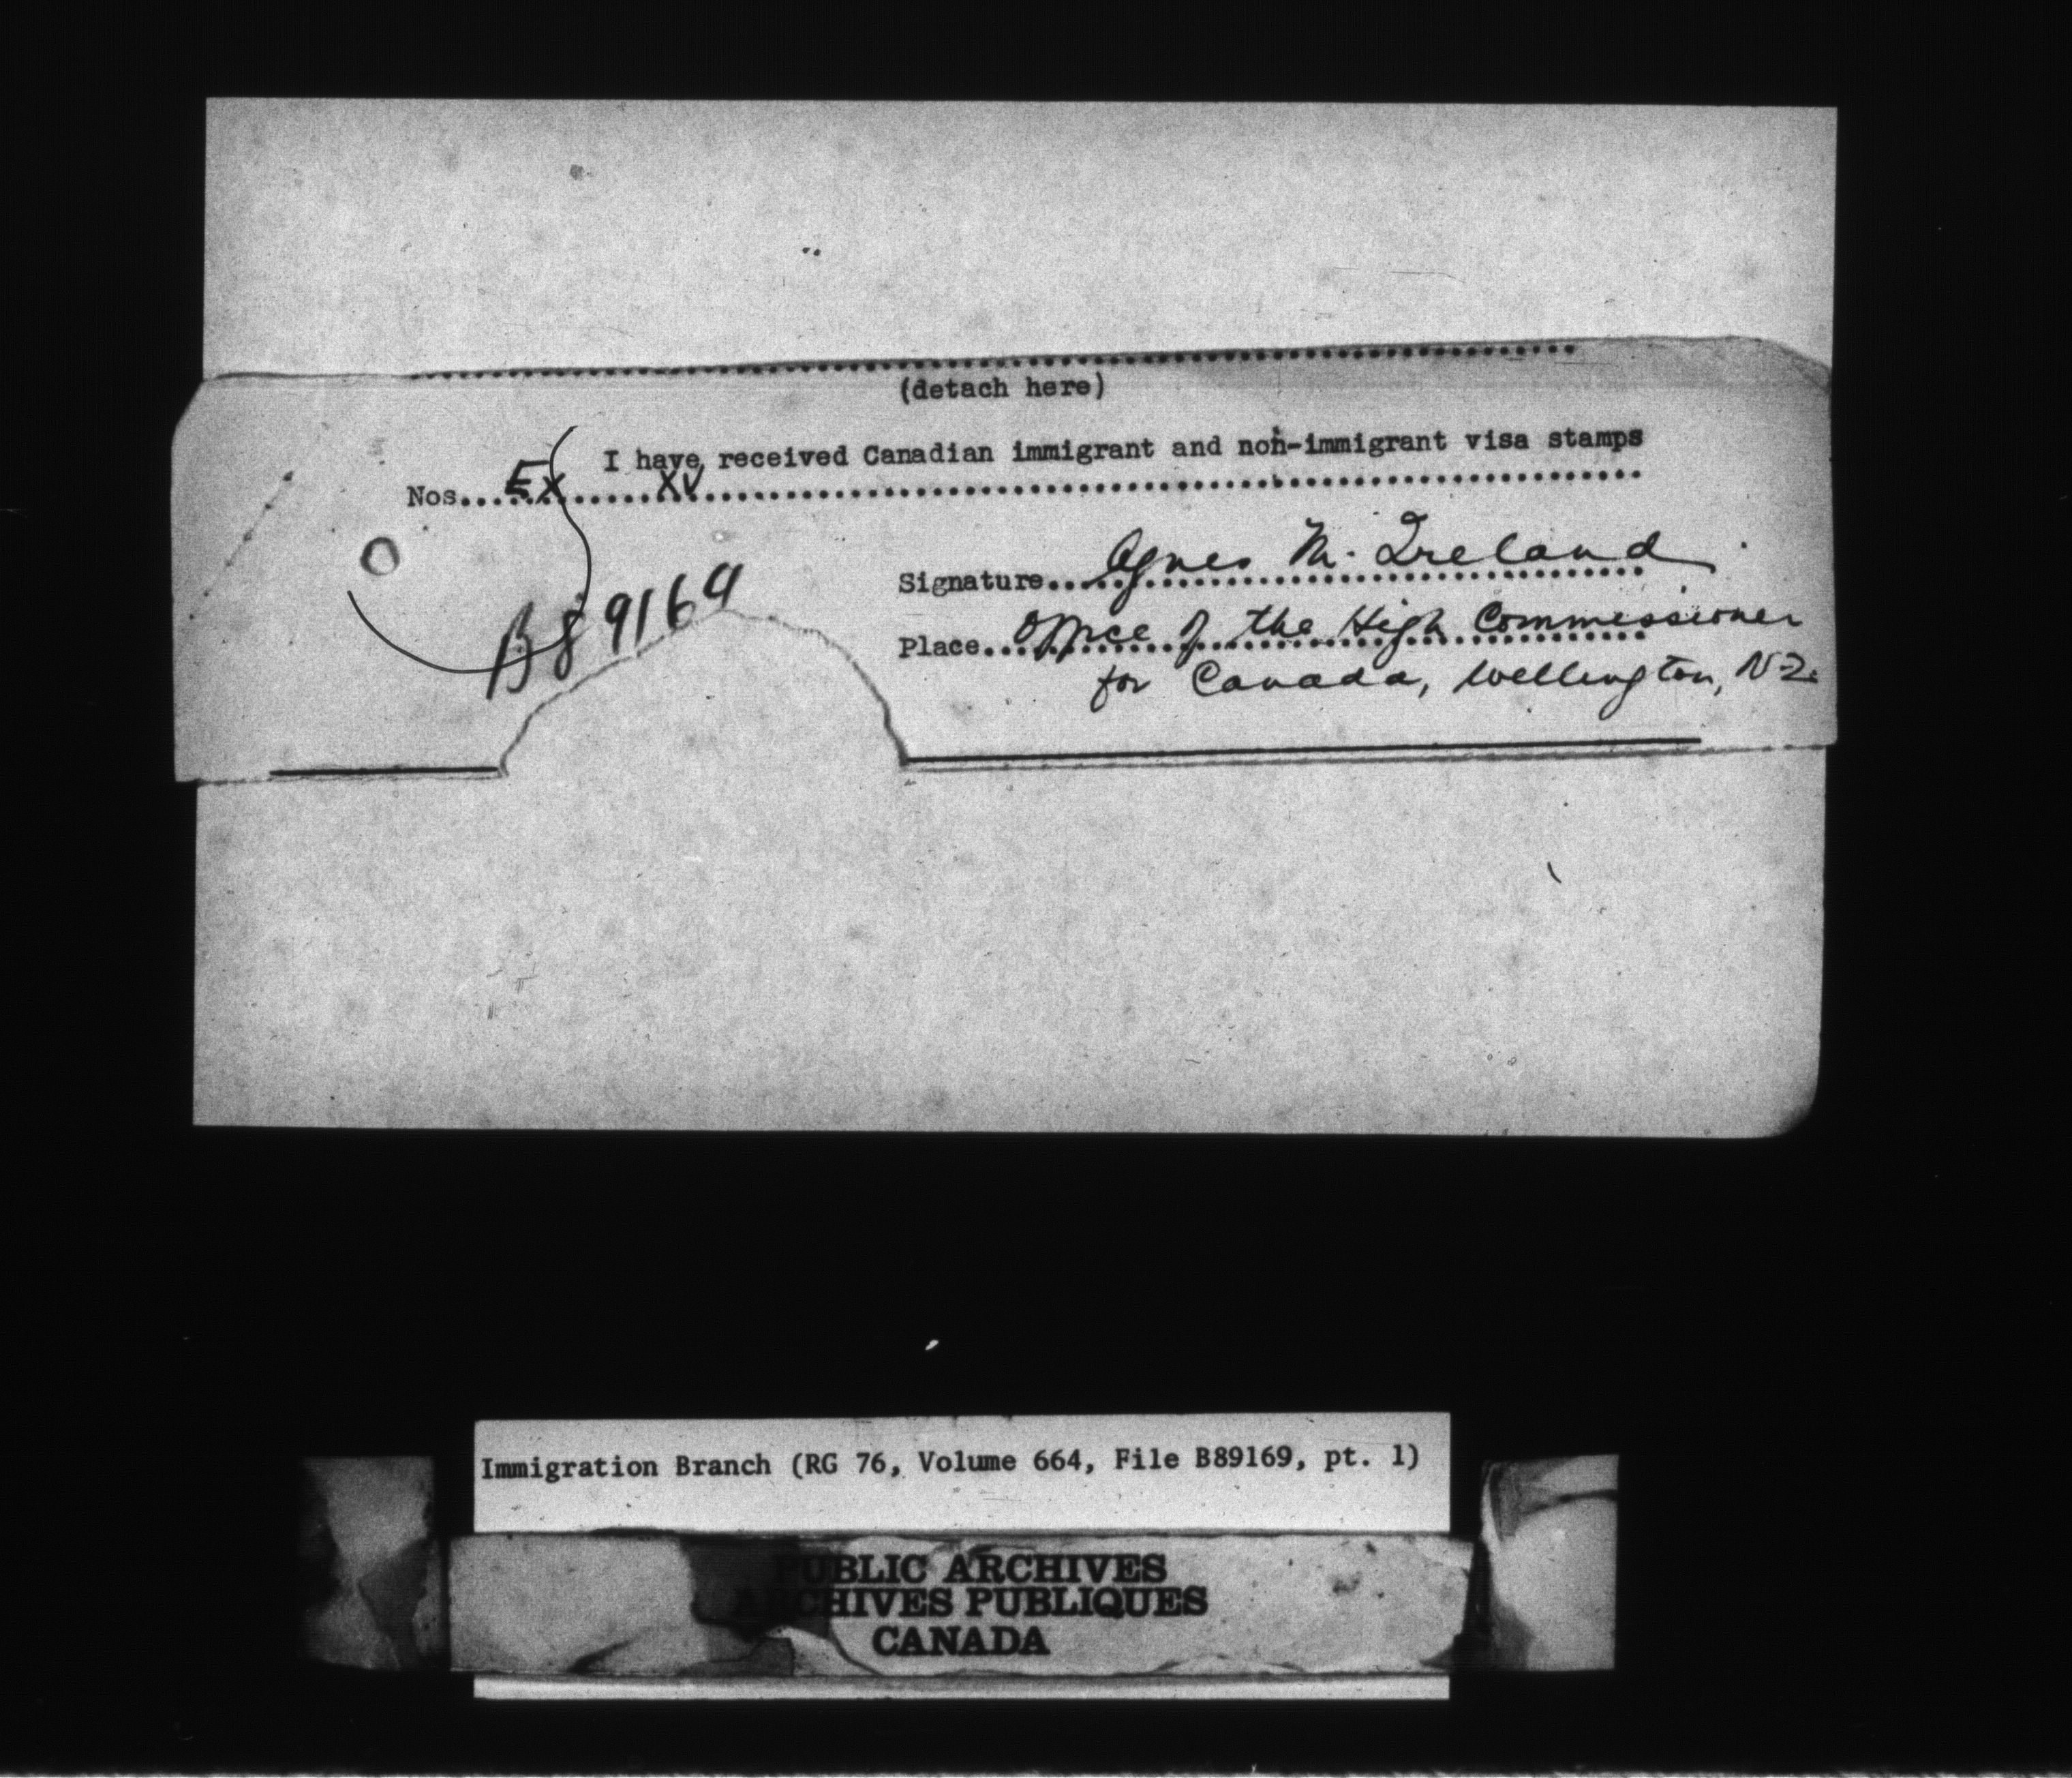 (detach here)
I have received Canadian immigrant and non-immigrant visa stamps
Nos. Ex XV
Signature Agnes M. Ireland
Place Office of the High Commissioner
for Canada, Wellington, N.Z.
B89169
Immigration Branch (RG 76, Volume 664, File B89169, pt. 1)
PUBLIC ARCHIVES
ARCHIVES PUBLIQUES
CANADA